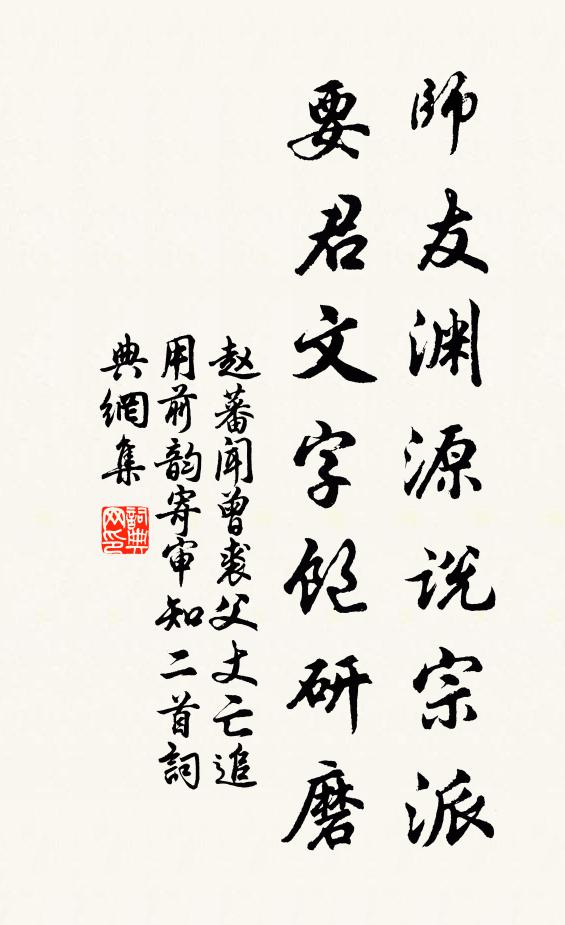 師友渊源説宗派
要君文字飽研磨
赵蕃闻曾裘父丈亡追
用前韵寄审知二首詞
典網集
詞典网印